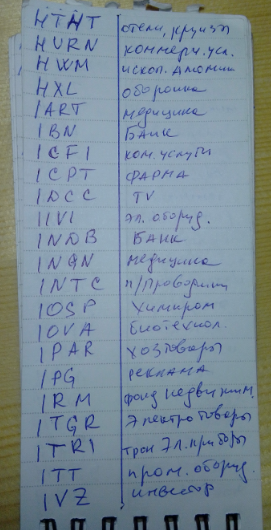 HTHT отели, круизы
HURN коммерч. усл.
HWM ископ. алюмин
HXL оборонка
IART медицина
IBN Банк
ICFI ком. услуги
ICPT ФАРМА
IDCC TV
IIVI эл. оборуд.
INDB Банк
INGN медицина
INTC п/проводники
IOSP химпром
IOVA биотехнол.
IPAR хозтовары
IPG реклама
IRM фонд недвижим.
ITGR Электротовары
ITRI эл. приборы
ITT пром. оборуд.
IVZ инвестор